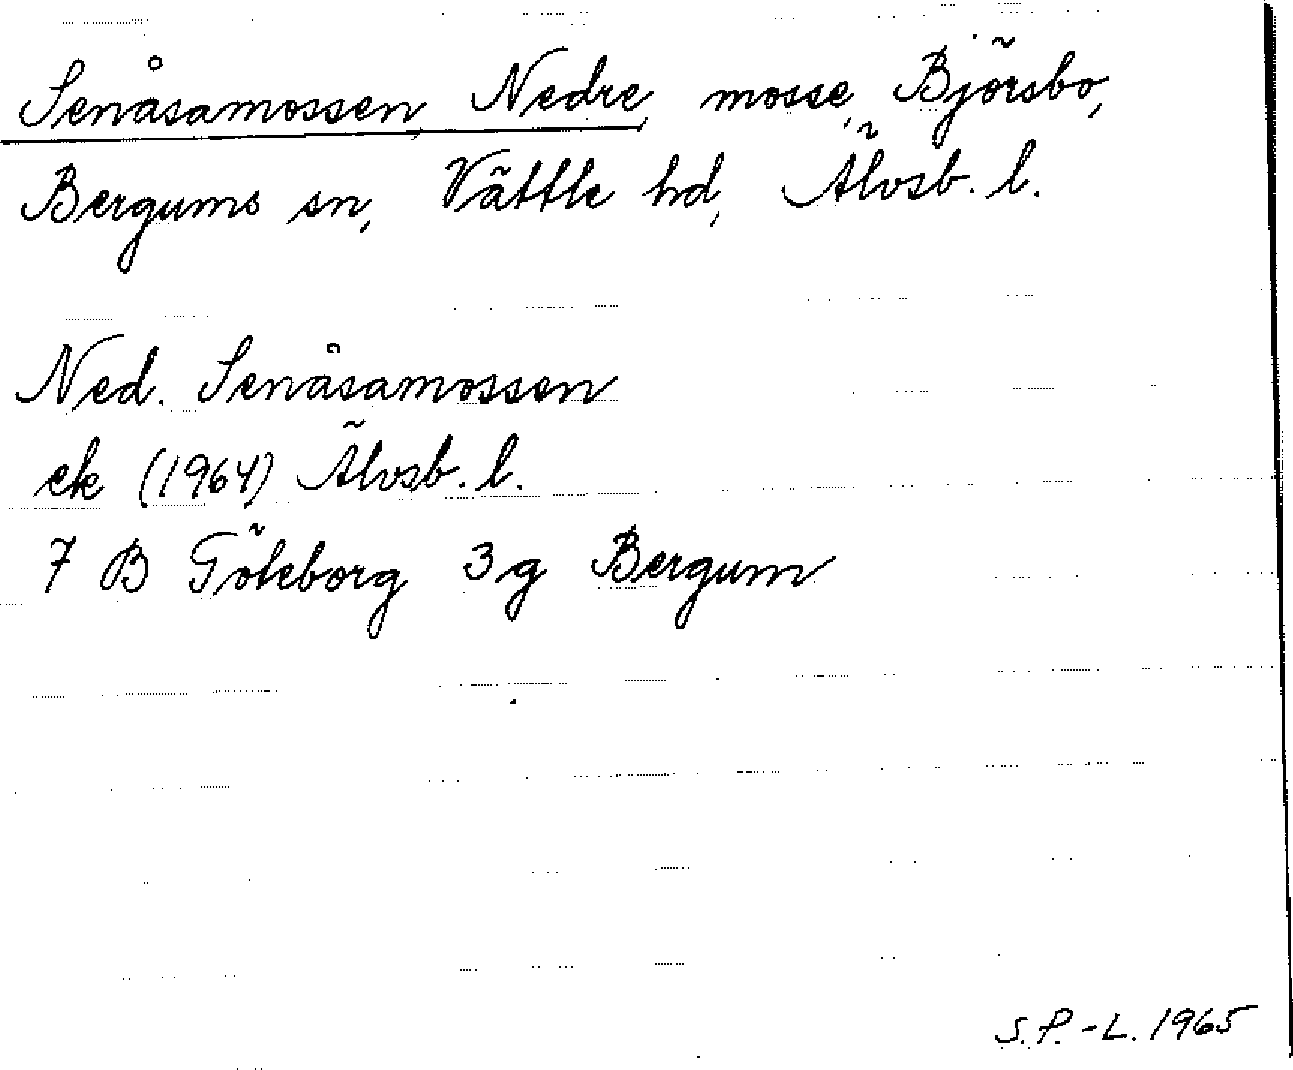 Senåsamossen, Nedre, mosse, Björsbo,
Bergums sn, Vättle hd, Älvsb. l.
Ned. Senåsamossen
ek (1964) Älvsb. l.
7 B Göteborg 3g Bergum
S.P.-L. 1965